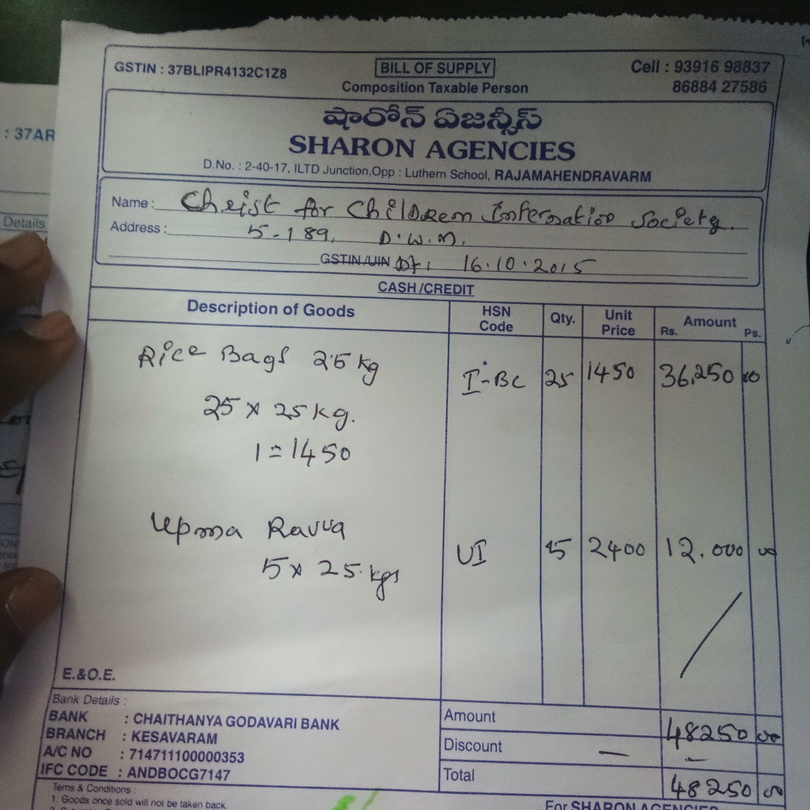 GSTIN : 37BLIPR4132C1Z8
BILL OF SUPPLY
Composition Taxable Person
Cell : 93916 98837
86884 27586
షారోన్ ఏజన్సీస్
SHARON AGENCIES
D.No. : 2-40-17, ILTD Junction,Opp : Luthern School, RAJAMAHENDRAVARM
Name : Christ for Children Internation Society.
Address : 5-189, D.W.M.
GSTIN/UIN Dt: 16.10.2015
CASH/CREDIT
Description of Goods HSN Code Qty. Unit Price Amount Rs. Ps.
Rice Bags 25 kg I-BC 25 1450 36,250 00
25 x 25 kg.
1 = 1450
Upma Ravva UI 5 2400 12.000 00
5 x 25 kgs
E.&O.E.
Bank Details :
BANK : CHAITHANYA GODAVARI BANK
BRANCH : KESAVARAM
A/C NO : 714711100000353
IFC CODE : ANDBOCG7147
Amount 48250 00
Discount — –
Total 48250 00
Terms & Conditions :
1. Goods once sold will not be taken back.
For SHARON AGENCIES
: 37AR
Details